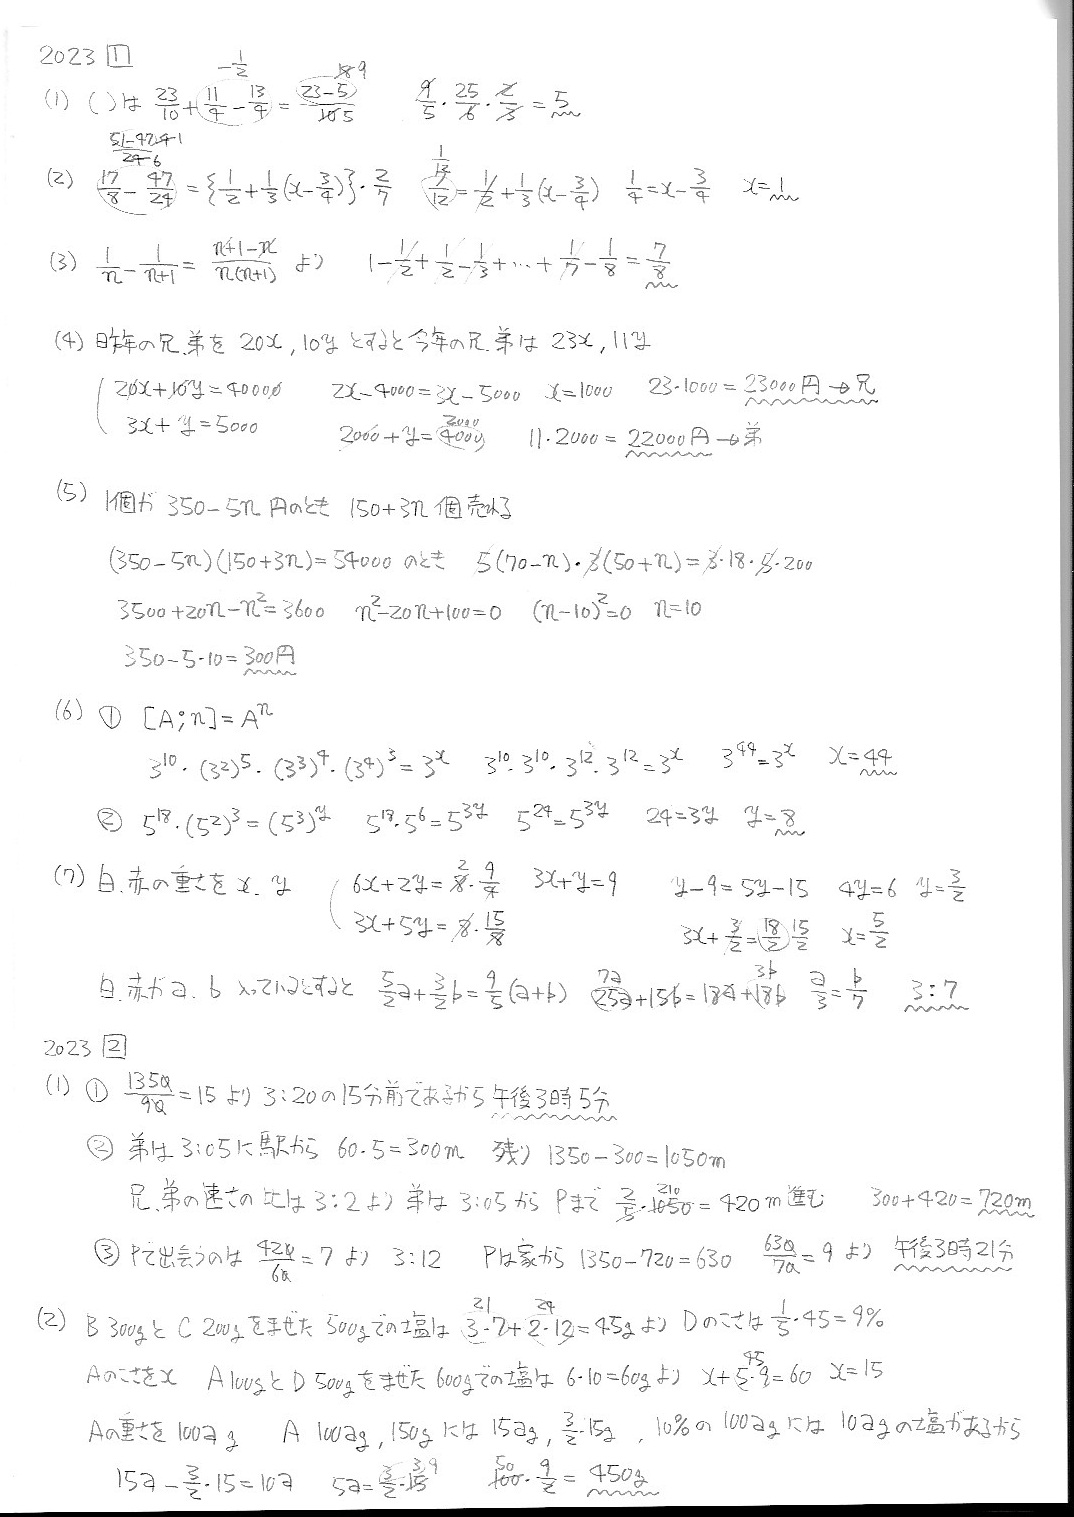 2023 1
(1) ( )は 23/10+(11/4-13/4)=(23-5)/10 -1/2 18 9 5 9/5・25/6・2/3=5
(2) 17/8-47/24={1/2+1/3(x-3/4)}・2/7 (51-47)/24 4 1 6 7/12=1/2+1/3(x-3/4) 1/12 1/4=x-3/4 x=1
(3) 1/n-1/(n+1)=(n+1-n)/(n(n+1)) より 1-1/2+1/2-1/3+…+1/7-1/8=7/8
(4) 昨年の兄.弟を 20x, 10y とすると今年の兄.弟は 23x, 11y
20x+10y=40000 2x-4000=3x-5000 x=1000 23・1000=23000円→兄
3x+y=5000 2000+y=4000 2000 11・2000=22000円→弟
(5) 1個が 350-5n 円のとき 150+3n 個売れる
(350-5n)(150+3n)=54000 のとき 5(70-n)・3(50+n)=3・18・5・200
3500+20n-n²=3600 n²-20n+100=0 (n-10)²=0 n=10
350-5・10=300円
(6) ① [A;n]=Aⁿ
3¹⁰・(3²)⁵・(3³)⁴・(3⁴)³=3ˣ 3¹⁰・3¹⁰・3¹²・3¹²=3ˣ 3⁴⁴=3ˣ x=44
② 5¹⁸・(5²)³=(5³)ʸ 5¹⁸・5⁶=5³ʸ 5²⁴=5³ʸ 24=3y y=8
(7) 白.赤の重さを x. y 6x+2y=8・9/4 2 3x+y=9 y-9=5y-15 4y=6 y=3/2
3x+5y=8・15/8 3x+3/2=18/2 15/2 x=5/2
白.赤が a. b 入っているとすると 5/2a+3/2b=9/5(a+b) 25a+15b=18a+18b 7a 3b a/3=b/7 3:7
2023 2
(1) ① 1350/90=15 より 3:20の15分前であるから 午後3時5分
② 弟は 3:05に駅から 60・5=300m 残り 1350-300=1050m
兄.弟の速さの比は 3:2より 弟は 3:05から Pまで 2/5・1050=420m進む 210 300+420=720m
③ Pで出会うのは 420/60=7 より 3:12 Pは家から 1350-720=630 630/70=9 より 午後3時21分
(2) B 300gと C 200gをまぜた 500gでの塩は 3・7+2・12=45gより 21 24 Dのこさは 1/5・45=9%
Aのこさをx A100gとD500gをまぜた 600gでの塩は 6・10=60gより x+5・9=60 45 x=15
Aの重さを 100a g A 100ag, 150g には 15ag, 3/2・15g , 10%の 100agには 10agの塩があるから
15a-3/2・15=10a 5a=3/2・15 3 9 100・9/2=450g 50